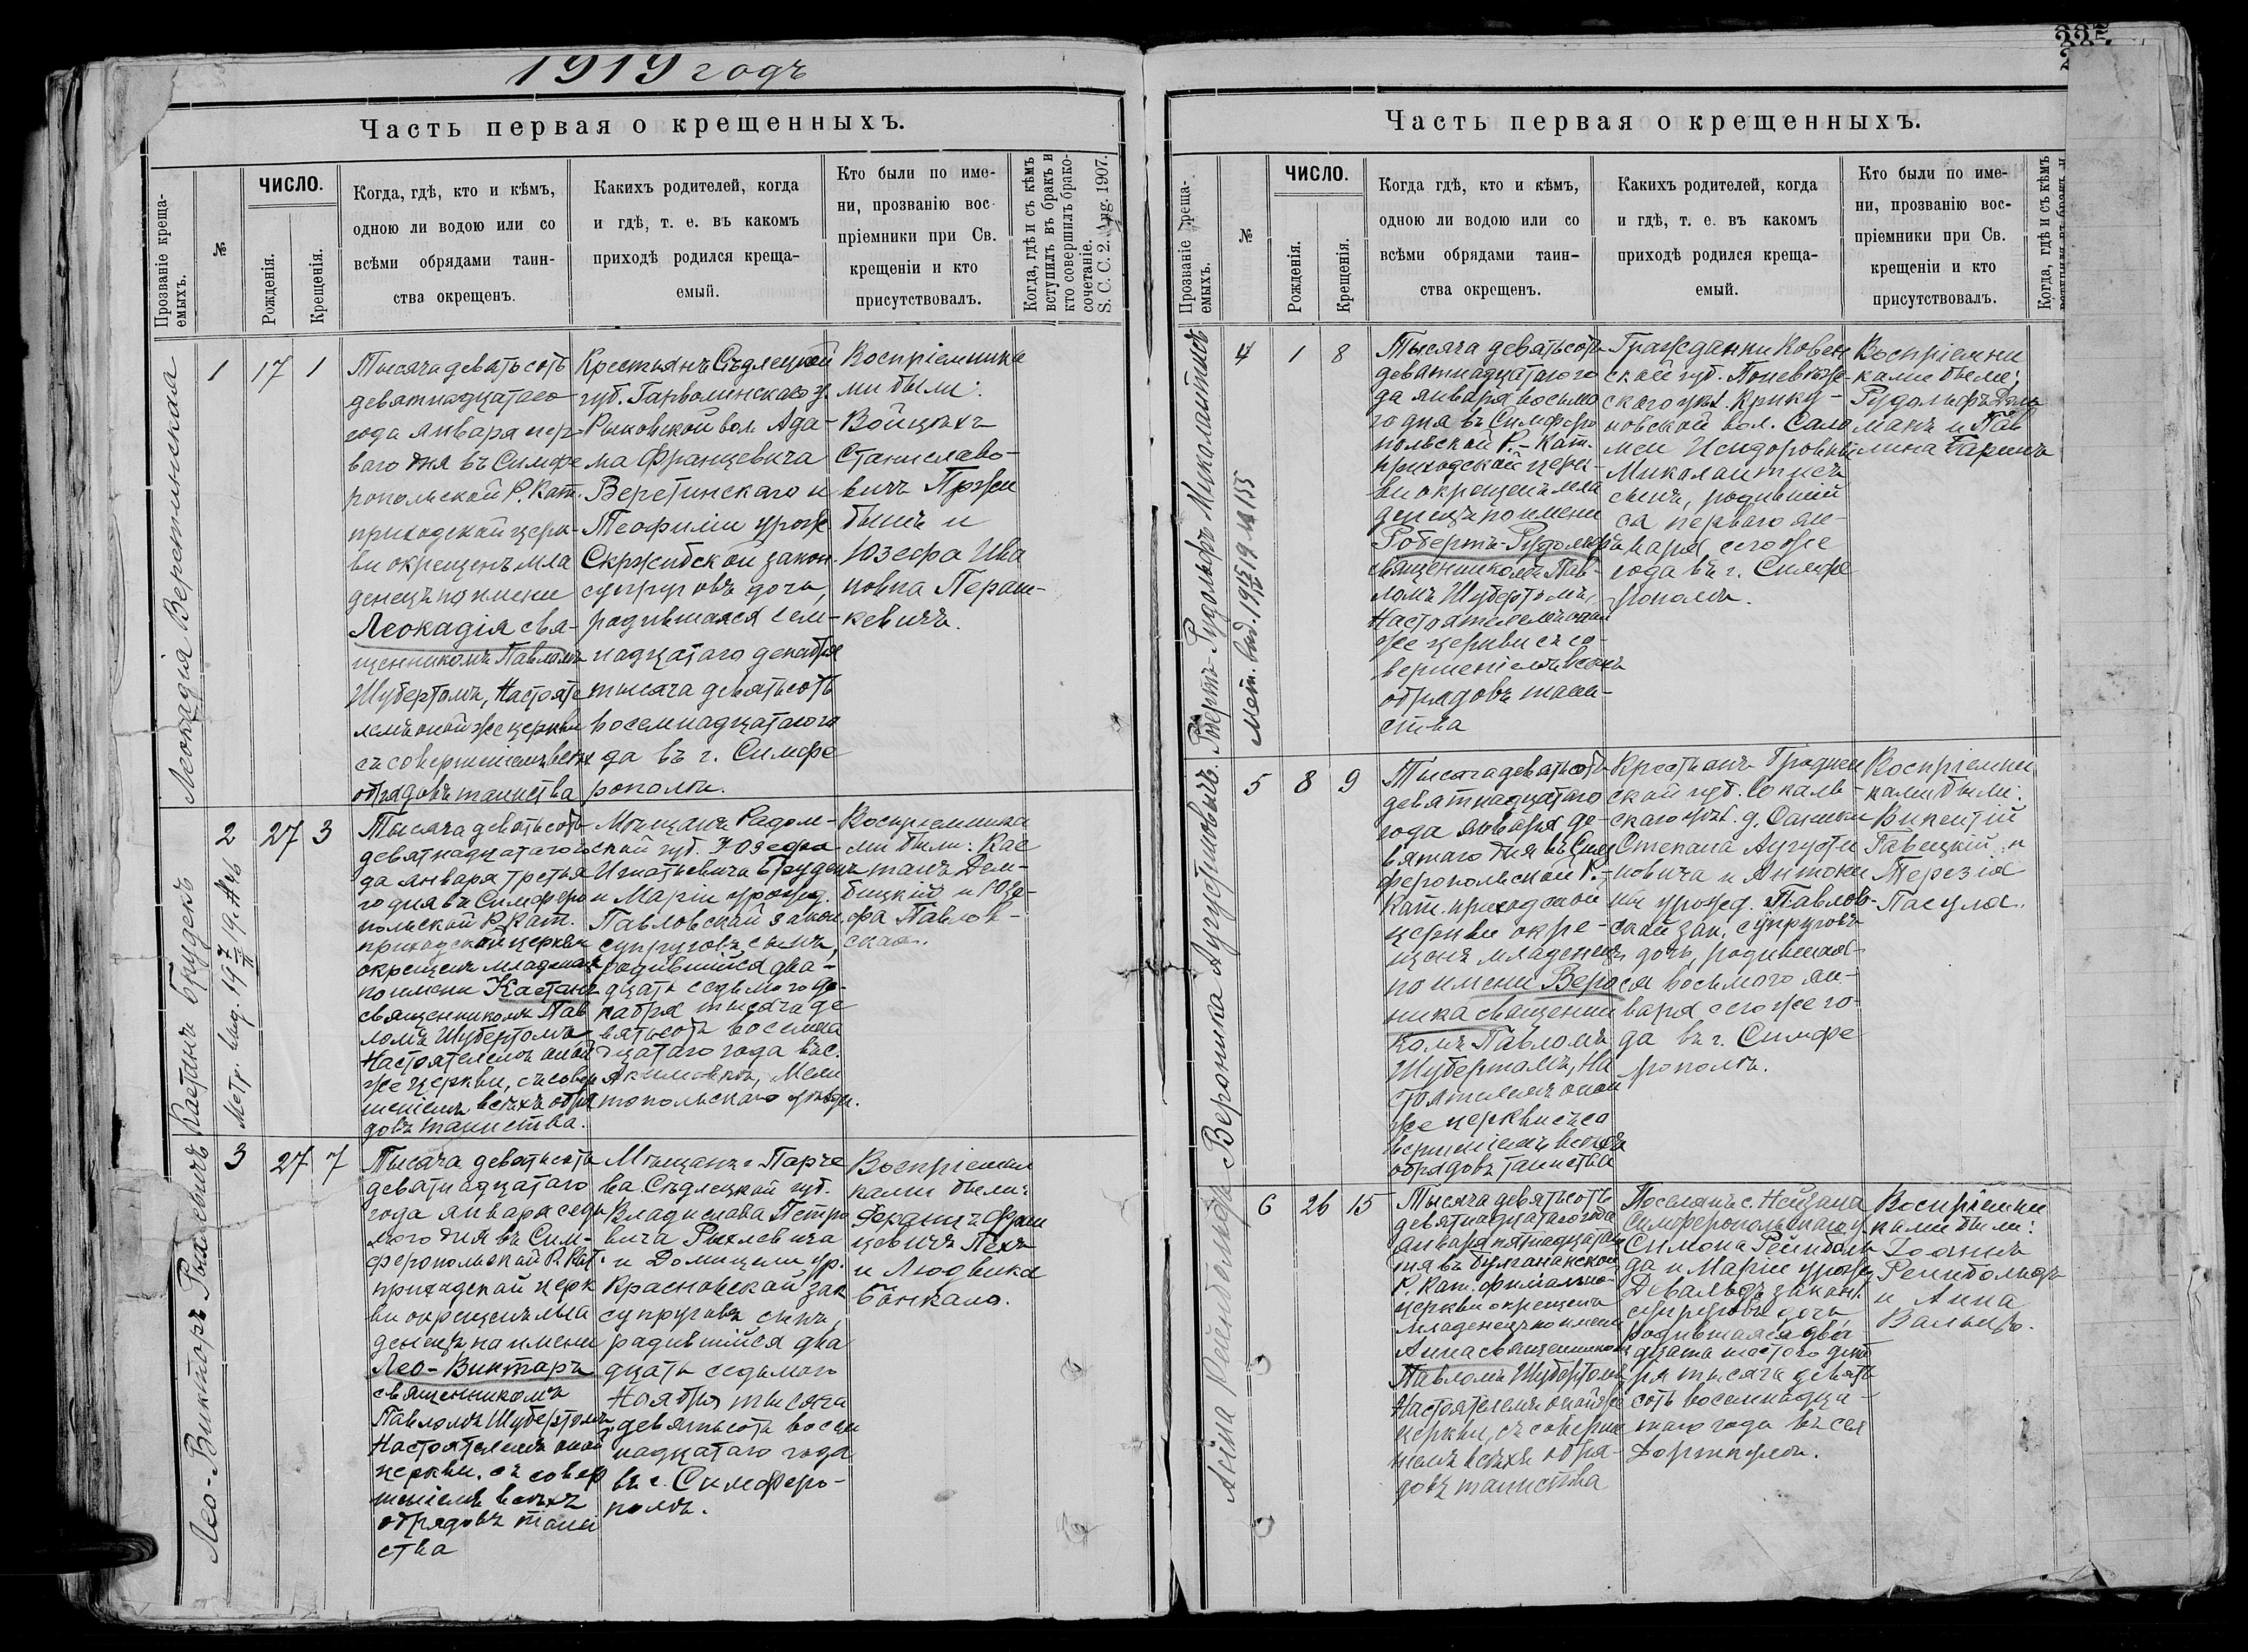 1919 годъ
Часть первая о крещенныхъ.
Прозваніе креща-
емыхъ.
№
ЧИСЛО.
Рожденія.
Крещенія.
Когда, гдѣ, кто и кѣмъ,
одною ли водою или со
всѣми обрядами таин-
ства окрещенъ.
Какихъ родителей, когда
и гдѣ, т. е. въ какомъ
приходѣ родился креща-
емый.
Кто были по име-
ни, прозванію вос-
пріемники при Св.
крещеніи и кто
присутствовалъ.
Когда, гдѣ и съ кѣмъ
вступилъ въ бракъ и
кто совершилъ брако-
сочетаніе.
S. C. C. 2. Aug. 1907.
Леокадія Веретинская
1 17 1
Тысяча девятьсотъ
девятнадцатаго
года января пер-
ваго дня въ Симфе
ропольской Р. Кат.
приходской церк-
ви окрещенъ мла
денецъ по имени
Леокадія свя-
щенникомъ Павломъ
Шубертомъ, Настояте
лемъ оной же церкви
съ совершеніемъ всѣхъ
обрядовъ таинства
Крестьянъ Сѣдлецкой
губ. Гарволинскаго у.
Рыковской вол. Ада-
ма Францевича
Веретинскаго и
Теофиліи урож.
Скржибской закон.
супруговъ дочь,
родившаяся сем-
надцатаго декабря
тысяча девятьсотъ
восемнадцатаго го
да въ г. Симфе
рополѣ.
Воспріемника
ми были:
Войцѣхъ
Станиславо-
вичъ Пржи
бышъ и
Юзефа Ива
новна Пераш-
кевичъ.
Каетанъ Брудекъ
Метр. выд. 19 7/II 19 № 46
2 27 3
Тысяча девятьсотъ
девятнадцатаго го
да января третья
го дня въ Симферо
польской Р. Кат.
приходской церкви
окрещенъ младенецъ
по имени Каетанъ
священникомъ Пав
ломъ Шубертомъ,
Настоятелемъ оной
же церкви, съ совер
шеніемъ всѣхъ обря
довъ таинства.
Мѣщанъ Радом-
ской губ. Юзефа
Игнатьевича Брудекъ
и Маріи урожд.
Павловской закон.
супруговъ сынъ,
родившійся два-
дцать седьмого де-
кабря тысяча де
вятьсотъ восемна
дцатаго года въ с.
Акимовкѣ, Мели
топольскаго уѣзда.
Воспріемника
ми были: Кае
танъ Дем-
бицкій и Юзе-
фа Павлов-
ская.
Лео-Викторъ Рыхлевичъ
3 27 7
Тысяча девятьсотъ
девятнадцатаго
года января седь
мого дня въ Сим-
феропольской Р. Кат.
приходской церк
ви окрещенъ мла
денецъ по имени
Лео-Викторъ
священникомъ
Павломъ Шубертомъ,
Настоятелемъ оной
церкви, съ совер
шеніемъ всѣхъ
обрядовъ таин
ства
Мѣщанъ г. Парче
ва Сѣдлецкой губ.
Владислава Петро
вича Рыхлевича
и Домицели ур.
Красновской зак
супруговъ сынъ,
родившійся два
дцать седьмого
Ноября тысяча
девятьсотъ восем
надцатаго года
въ г. Симферо-
полѣ.
Воспріемни
ками были:
Францъ Фран
цевичъ Пехъ
и Людвика
Бонкало.
Часть первая о крещенныхъ.
Прозваніе креща-
емыхъ.
№
ЧИСЛО.
Рожденія.
Крещенія.
Когда гдѣ, кто и кѣмъ,
одною ли водою или со
всѣми обрядами таин-
ства окрещенъ.
Какихъ родителей, когда
и гдѣ, т. е. въ какомъ
приходѣ родился креща-
емый.
Кто были по име-
ни, прозванію вос-
пріемники при Св.
крещеніи и кто
присутствовалъ.
Когда, гдѣ и съ кѣмъ
Робертъ-Рудольфъ Миколаитисъ
4 1 8
Тысяча девятьсотъ
девятнадцатаго го
да января восьмо
го дня въ Симферо
польской Р.-Кат.
приходской церк-
ви окрещенъ мла
денецъ по имени
Робертъ-Рудольфъ
священникомъ Пав-
ломъ Шубертомъ,
Настоятелемъ оной
же церкви съ со-
вершеніемъ всѣхъ
обрядовъ таин-
ства
Гражданки Ковен
ской губ. Поневѣж-
скаго уѣз. Крику-
новской вол. Сало
меи Исидоровны
Миколаитисъ
сынъ, родившій
ся перваго ян-
варя сего же
года въ г. Симфе
рополѣ.
Воспріемни
ками были:
Рудольфъ
манъ и Пав
лина
Вероника Августиновичъ.
5 8 9
Тысяча девятьсотъ
девятнадцатаго
года января де-
вятаго дня въ Сим
феропольской Р.-
Кат. приходской
церкви окре-
щенъ младенецъ
по имени Веро
ника священни
комъ Павломъ
Шубертомъ, На
стоятелемъ оной
же церкви съ со
вершеніемъ всѣхъ
обрядовъ таинства
Крестьянъ Гроднен
ской губ. Соколь-
скаго уѣз. д.
Степана Августи
новича и Антони
ны урожд. Павлов-
ской зак. супруговъ
дочь, родившая-
ся восьмого ян-
варя сего же го-
да въ г. Симфе
рополѣ.
Воспріемни
ками были:
Викентій
Гавецкій и
Терезія
Пасула.
Анна Рейнбольдъ
6 26 15
Тысяча девятьсотъ
девятнадцатаго года
января пятнадцатаго
дня въ Булганакской
Р. Кат. филіальной
церкви окрещенъ
младенецъ по имени
Анна священникомъ
Павломъ Шубертомъ
Настоятелемъ оной же
церкви, съ соверше
ніемъ всѣхъ обря-
довъ таинства
Поселянъ с. Нейзаца
Симферопольскаго у.
Симона Рейнболь
да и Маріи урожд.
Девальдъ закон.
супруговъ дочь,
родившаяся два
дцать шестого декаб
ря тысяча девять
сотъ восемнадца-
таго года въ сел.
Воспріемни
ками были:
Іоаннъ
Рейнбольдъ
и Анна
Вальцъ.